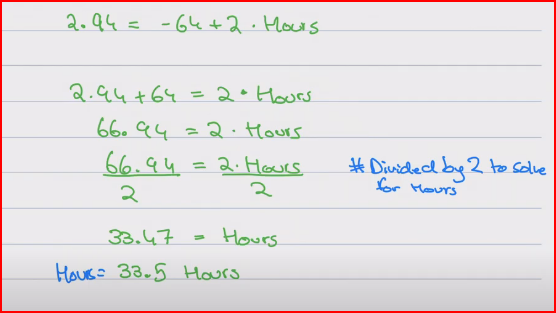 2.94 = -64 + 2 · Hours
2.94 + 64 = 2 · Hours
66.94 = 2 · Hours
66.94 = 2. Hours # Divided by 2 to solve
2 2 for Hours
33.47 = Hours
Hours= 33.5 Hours